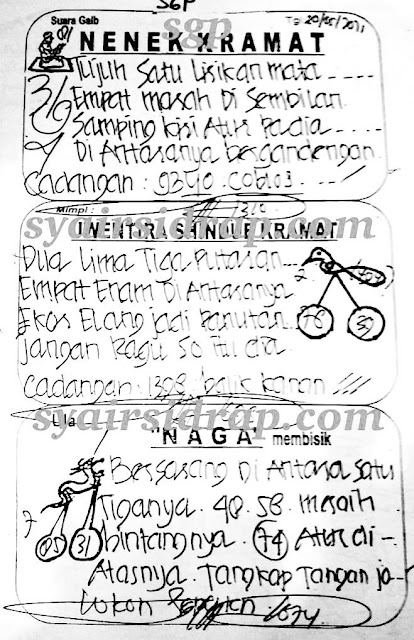 SGP
Suara Gaib
Tg 20/05/2021
NENEK KRAMAT
sgp
Tujuh Satu Lisikan mata
Empat masah Di Sembilan
Samping kisi Atur Padia
Di Antasanya bergandengan
cadangan : 9340. coblos
Mimpi :
syairsidrap.com
KRAMAT
Dua Lima Tiga Putasan
Empat Enam Di Antasanya
Ekos Elang jadi Panutan
78
jangan Ragu So itu dia
cadangan : 1398 balik kanan
Lila
syairsidrap.com
"NAGA" membisik
Bersasang Di Antasa Satu
Tiganya. 40. 58. masih
31
bintangnya. 74 Atur di -
Atasnya. Tangkap Tangan ja-